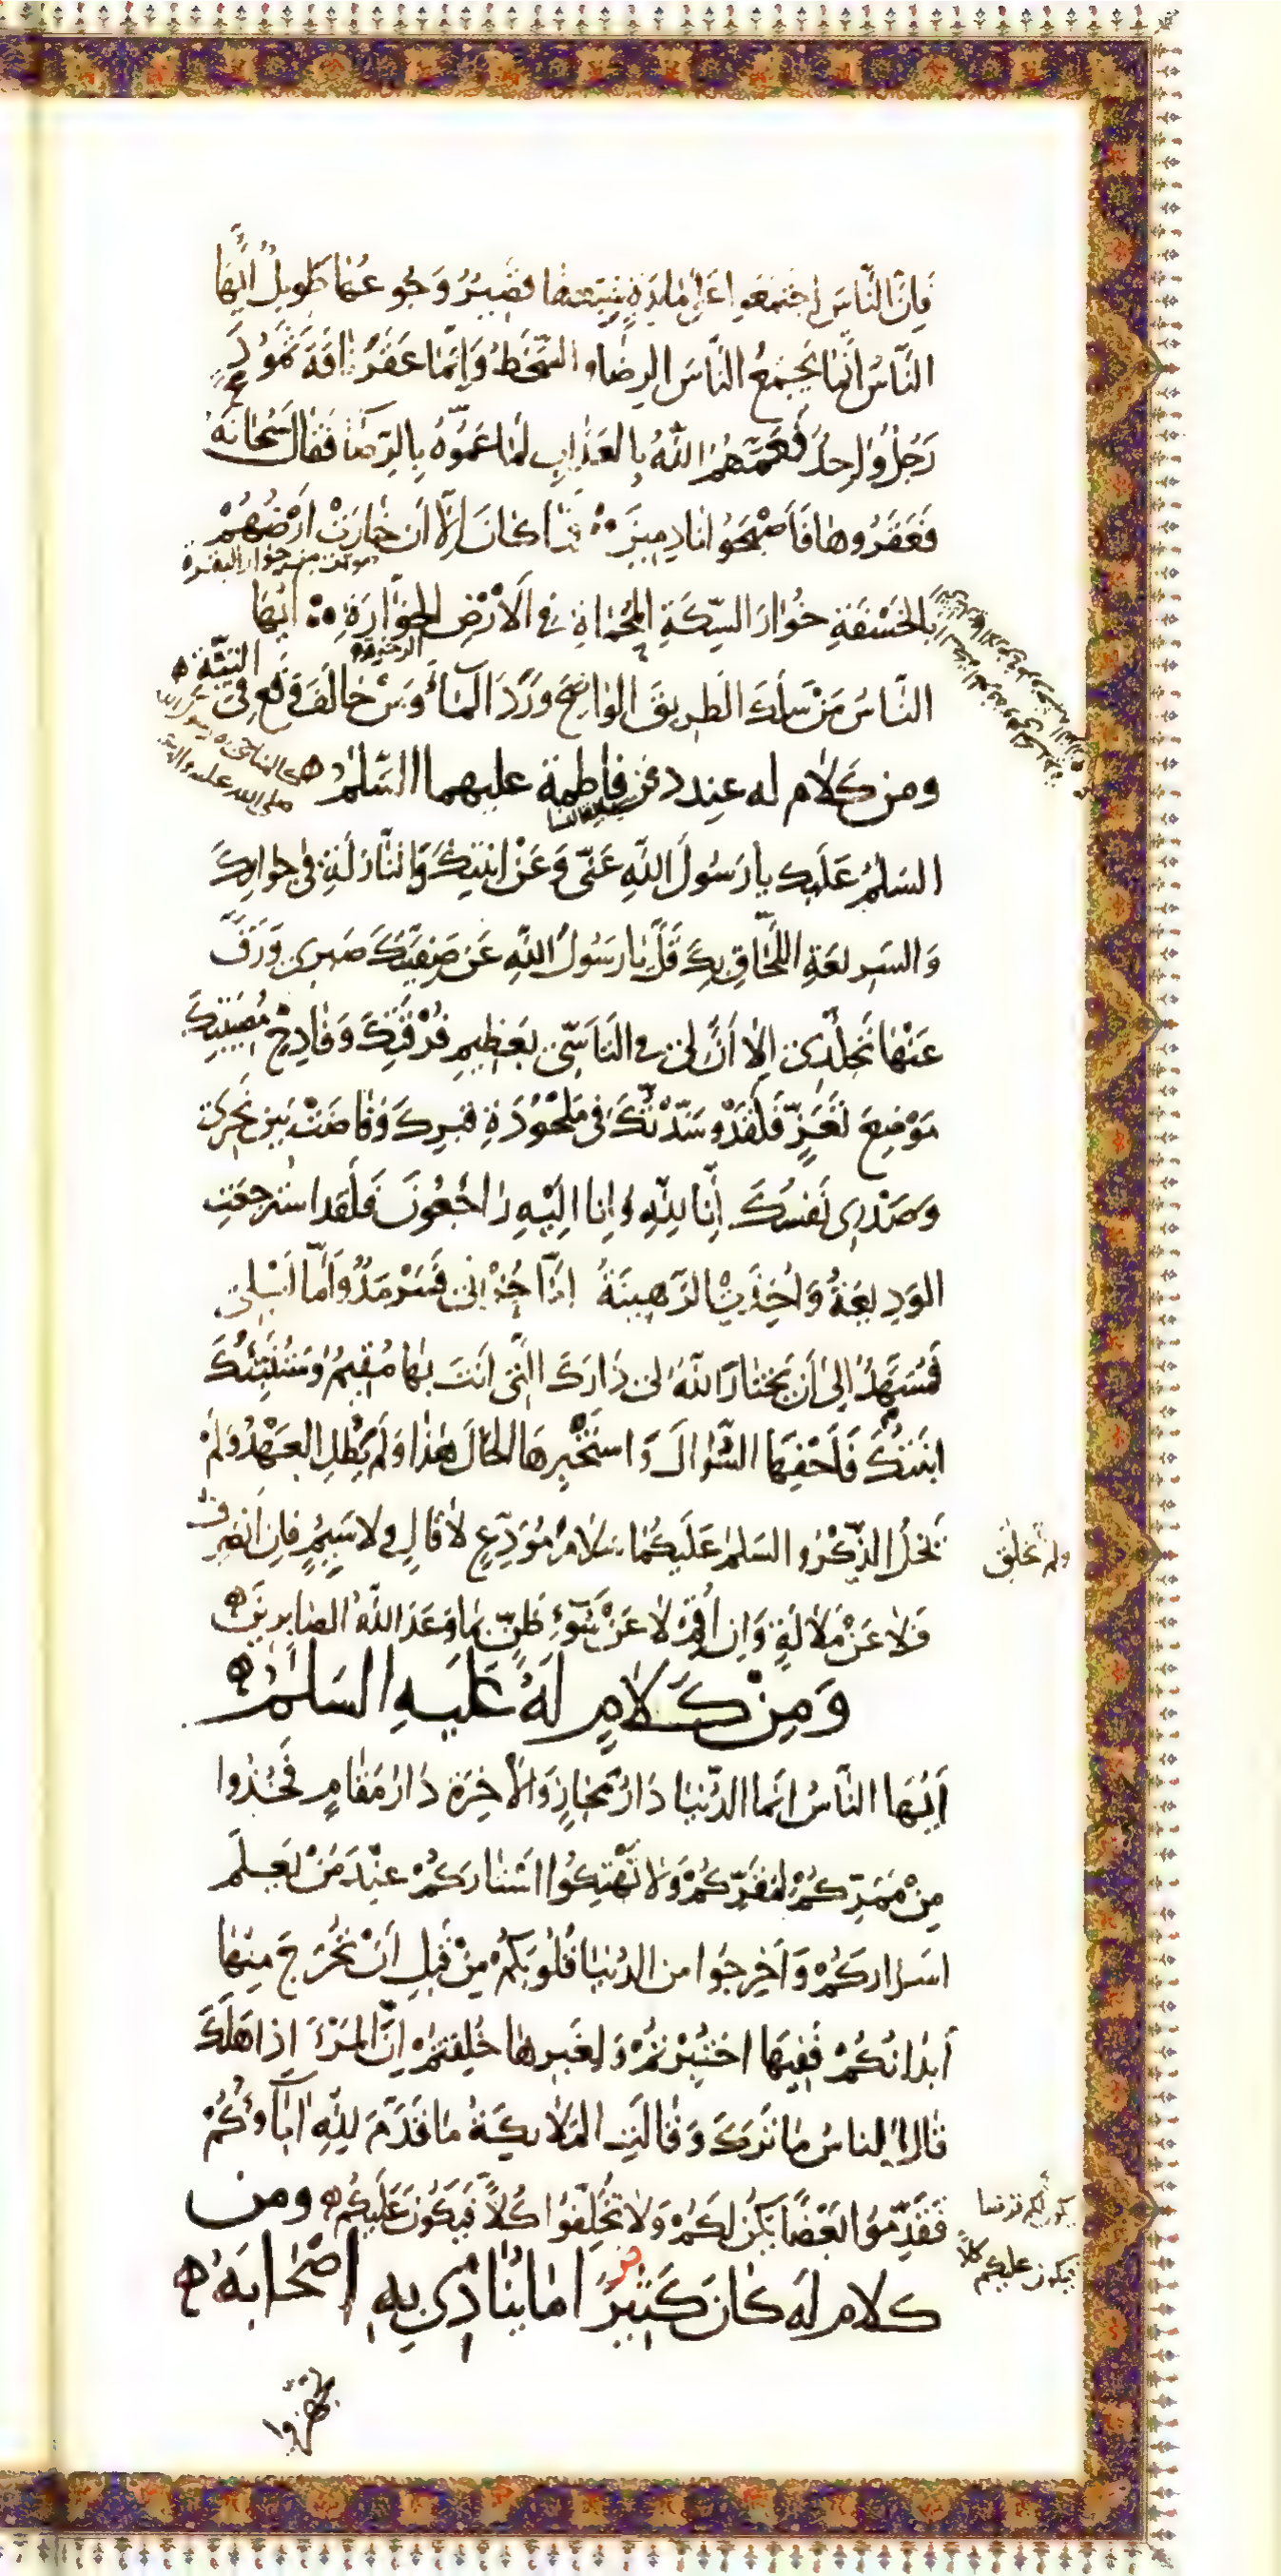 فَاِنَّ النَّاسَ اجْتَمَعُوا عَلَى مَايِدَةٍ شِبَعُهَا قَصِيرٌ وَجُوعُهَا طَوِيلٌ اَيُّهَا
النَّاسُ اِنَّمَا يَجْمَعُ النَّاسَ الرِضَا وَالسَّخَطُ وَاِنَّمَا عَقَرَ نَاقَةَ ثَمُودَ
رَجُلٌ وَاحِدٌ فَعَمَّهُمُ اللّٰهُ بِالعَذَابِ لَمَّا عَمُّوهُ بِالرِّضَا فَقَالَ سُبْحَانَهُ
فَعَقَرُوهَا فَاَصْبَحُوا نَادِمِينَ فَمَا كَانَ اِلَّا اَن خَارَتْ اَرْضُهُمْ
صوتت من خوار البقرة
بِالخَسْفَةِ خُوَارَ السِّكَّةِ المُحْمَاةِ فِي الاَرْضِ الخَوَّارَةِ اَيُّهَا
النَّاسُ مَنْ سَلَكَ الطَرِيقَ الوَاضِحَ وَرَدَ المَاءَ وَمَنْ خَالَفَ وَقَعَ فِي
التِّيهِ
ومن كَلَام له عند دفن فاطمة عليهما السَّلٰم
السَلٰمُ عَلَيكَ يا رَسُولَ اللّٰهِ عَنِّى وَعَنْ ابْنَتِكَ وَالنَّازِلَةِ فى جِوَارِكَ
وَالسَّرِيعَةِ اللَّحَاقِ بِكَ قَلَّ يَا رَسُولَ اللّٰهِ عَن صَفِيَّتِكَ صَبرِى وَرَقَّ
عَنْهَا تَجَلُّدِى اِلَّا اَنَّ لِى فِى التَاَسِّى بِعَظِيمِ فُرْقَتِكَ وَفَادِحِ مُصِيبَتِكَ
مَوْضِعَ تَعَزٍّ فَلَقَدْ وَسَّدْتُكَ فى مَلْحُودَةِ قَبرِكَ وَفَاضَتْ بَينَ نَحْرِى
وَصَدْرِى نَفسُكَ اِنَّا لِلّٰهِ وَاِنا اِلَيْهِ رَاجِعُونَ فَلَقَد استُرجِعَتِ
الوَدِيعَةُ وَاُخِذَتِ الرَّهِينَةُ اَمَّا حُزْنِى فَسَرْمَدٌ وَاَمَّا لَيْلِى
فَمُسَهَّدٌ اِلىٰ اَن يَختَارَ اللّٰهُ لى دَارَكَ الَّتِى اَنتَ بها مُقِيمٌ وَسَتُنَبِّئُكَ
ابْنَتُكَ فَاَحْفِهَا السُّؤالَ وَاستَخْبِرهَا الحَالَ هٰذَا وَلَم يَطُلِ العَهْدُ وَلَمْ
يَخلُ الذِّكْرُ والسَلٰمُ عَلَيكُمَا سَلَامَ مُوَدِّعٍ لَا قَالٍ وَلا سَئِمٍ فَاِن اَنصَرِف
ولم يخلق
فَلا عَنْ مَلَالَةٍ وَاِن اُقِمْ فَلا عَنْ سُوٓءِ ظَنٍّ بِمَا وَعَدَ اللّٰهُ الصَابِرِينَ
وَمِنْ كَلَامٍ لَهُ عَلَيهِ السَلٰمُ
اَيُّهَا النَّاسُ اِنَّمَا الدُّنيَا دَارُ مَجَازٍ وَالاٰخِرَةُ دَارُ مَقَامٍ فَخُذُوا
مِنْ مَمَرِّكُمْ لِمَقَرِّكُمْ وَلَا تَهْتِكُوا اَسْتَارَكُمْ عِنْدَ مَنْ يَعلَم
اَسرارَكُمْ وَاَخرِجُوا من الدُنيَا قُلُوبَكُمْ مِنْ قَبلِ اَنْ تَخْرُجَ مِنهَا
اَبدَانُكُمْ فَفِيهَا اختُبِرْتُمْ وَلِغَيرِهَا خُلِقتُمْ اِنَّ المَرْءَ اِذَا هَلَكَ
قَالَ الناسُ مَا تَرَكَ وَقَالَتِ المَلَايكَةُ مَا قَدَّمَ لِلّٰهِ اٰبَآؤُكُمْ
فَقَدِّمُوا بَعْضًا يَكُن لَكُمْ وَلَا تُخَلِّفُوا كُلًّا فَيَكُونَ عَلَيكُم ومن
يكون لكم قرضا
فيكون عليكم كلّا
كَلام له كانَ كَثِيرًا مَا يُنَادِى بِهِ اَصْحَابَهُ